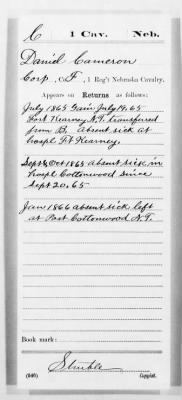 C 1 Cav. Neb.
Daniel Cameron
Corp, Co. F, 1 Reg't Nebraska Cavalry.
Appears on
Returns as follows:
July 1865 Gain July 19, 65
Fort Kearney N.T. transferred
from B, Absent sick at
hospl Ft Kearney.
Sept & Oct 1865 absent sick in
hospl Cottonwood since
Sept 20, 65
Jan 1866 absent sick left
at Post Cottonwood N.T.
Book mark:
Struble
(546) Copyist.